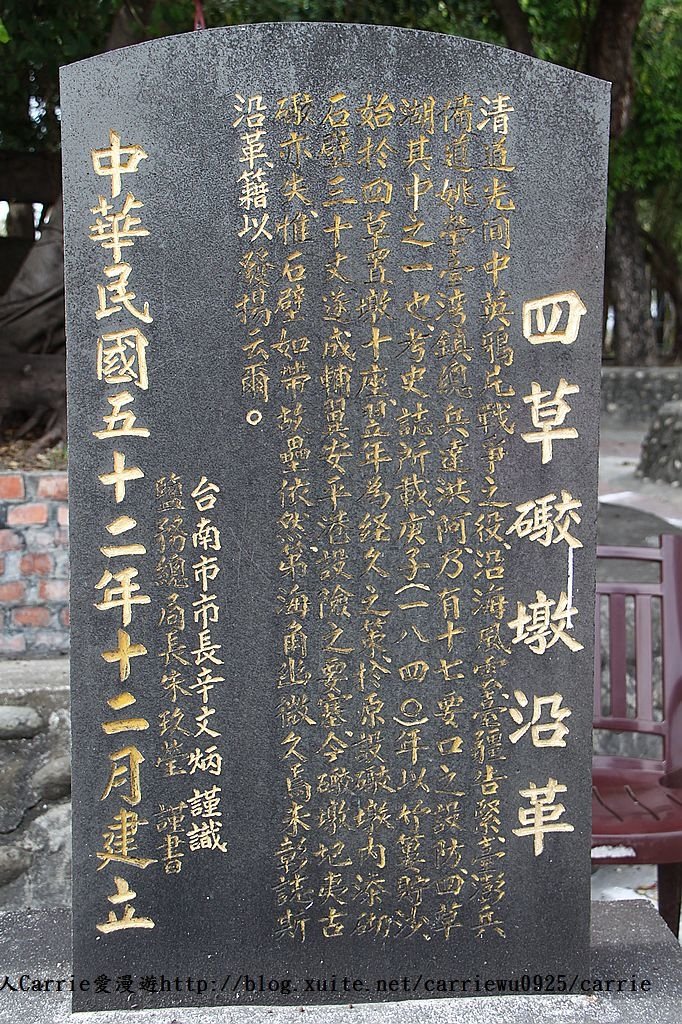 四草礮墩沿革
清道光間中英鴉片戰爭之役、沿海風雲、臺疆告緊、臺澎兵
備道姚瑩臺湾鎮總兵達洪阿、乃有十七要口之設防、四草
湖其中之一也、考史誌所載、庚子(一八四〇)年以竹簍貯沙、
始於四草置墩十座、翌年為経久之策、於原設礮墩內添砌
石壁三十丈、遂成輔翼安平港設險之要塞、今礮墩圮夷、古
礮亦失、惟石壁如帶、故壘依然、第海角幽徼、久焉未彰、誌斯
沿革、籍以發揚云爾。
台南市市長辛文炳謹識
鹽務總局長朱玖瑩謹書
中華民國五十二年十二月建立
人Carrie愛漫遊http://blog.xuite.net/carriewu0925/carrie